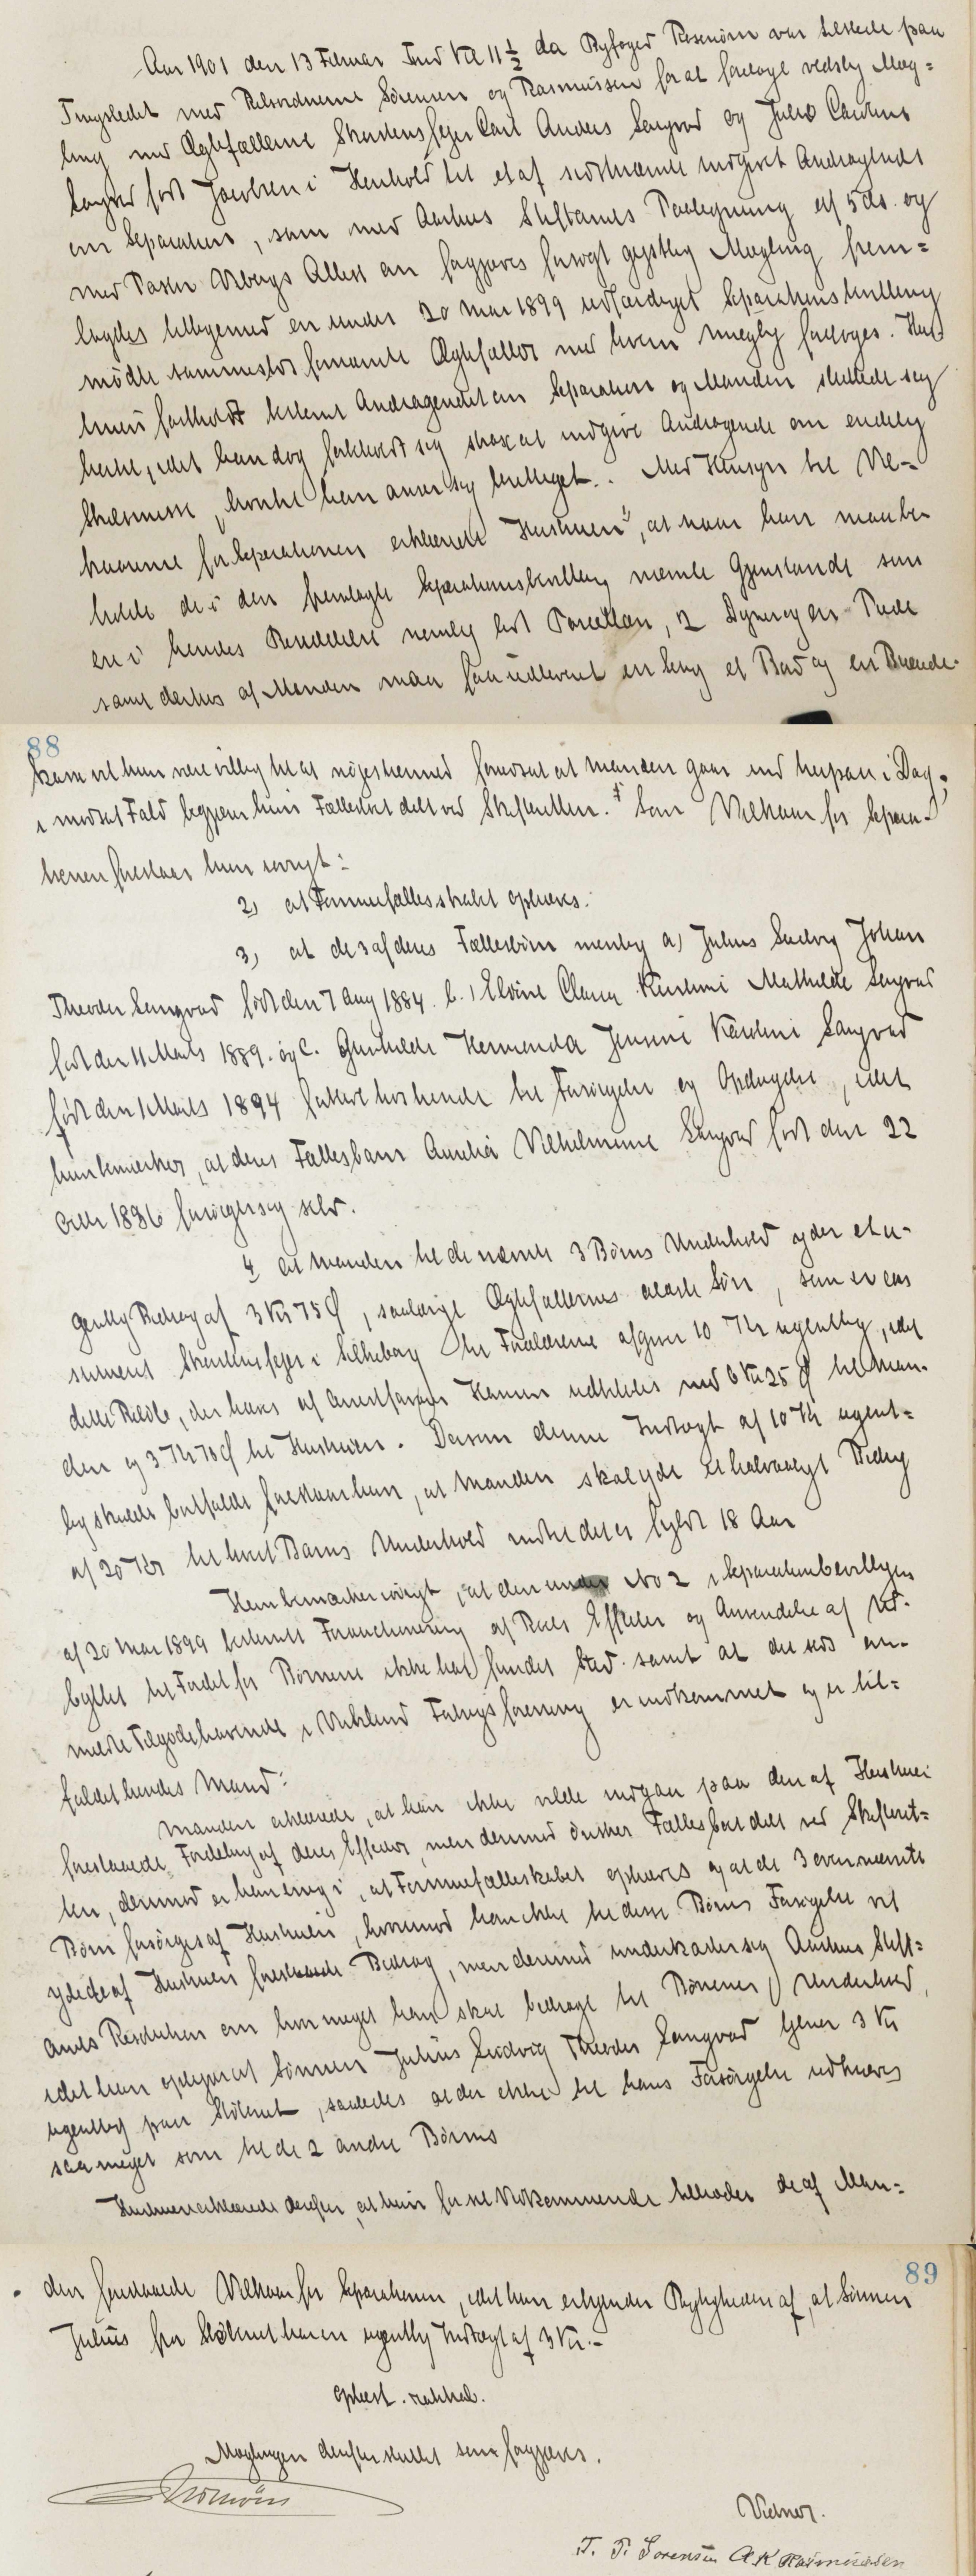 Aar 1901 den 13 Februar Fmd Kl 11 1/2 da Byfoged Rosenörn var tilstede paa
Tingstedet med Retsvidnerne Sörensen og Rasmussen for at foretage verdslig Mæg=
ling med Ægtefællerne Skorstensfejer Carl Anders Langvad og Julie Caroline
Langvad født Jacobsen i Henhold til et af sidstnævnte indgivet Andragende
om Separation, som med Aarhus Stiftamts Paategning af 5 ds. og
med Pastor Attest om forgjæves forsøgt gejstlig Mægling frem=
lagdes tilligemed en under 20 Mai 1899 udfærdiget Separationsbevilling
mödte sammesteds fornævnte Ægtefæller med hvem mægling foretoges. Hus=
truen fastholdt bestemt Andragendet om Separation og Manden sluttede sig
hertil, idet han dog forbeholdt sig strax at indgive Andragende om endelig
Skilsmisse, hvortil han anser sig berettiget. Med Hensyn til Vil=
kaarene for Separationen erklærede Hustruen, at naar hun maa be
holde de i den fremlagte Separationsbevilling nævnte Gjenstande som
ere i hendes Besiddelse nemlig lidt Porcellæn, 2 Dyner og en Pude
samt derhos af Manden maa faa udleveret en Seng et Bord og en Brænde
88
kasse vil hun være villig til at nøjes hermed forudsat at Manden gaar ind herpaa i Dag;
i modsat Fald begjærer hun Fællesboet delt ved Skifteretten. Som Vilkaar for Separa=
tionen foreslaaer hun iøvrigt:
2) at Formuefællesskabet ophæves.
3) at de 3 af deres Fællesbörn nemlig a) Julius Ludvig Johan
Theodor Langvad født den 7 Aug 1884. b.) Elvine Clara Kirstine Mathilde Langvad
født den 11 Marts 1889. og c. Gunhilde Hermanda Jensine Karoline Langvad
født den 1 Marts 1894 forbliver hos hende til Forsørgelse og Opdragelse, idet
hun bemærker, at deres Fællesbarn Amalia Vilhelmine Langvad født den 22
Octbr 1886 forsørger sig selv.
4 at Manden til de nævnte 3 Börns Underhold yder et u=
gentlig Bidrag af 3 Kr 75 Ø, saalænge Ægtefællernes ældste Sön, som er con
stitueret Skorstensfejer i Silkeborg til Forældrene afgiver 10 Kr ugentlig, idet
dette Beløb, der haves af ham udbetales med 6 Kr 25 Ø til Man=
den og 3 Kr 75 Ø til Hustruen. Dersom denne Indtægt af 10 Kr ugent=
lig skulde bortfalde foreslaar hun, at Manden skal yde et halvaarligt Bidrag
af 20 Kr til hvert Barns Underhold indtil det er fyldt 18 Aar
Hun bemærker iøvrigt, at den under No 2 i Separationsbevillingen
af 20 Mai 1899 bestemte af Effecter og Anvendelse af Ud=
byttet til Fordel for Börnene ikke har fundet Sted samt at det sidst om=
meldte Tilgodehavende i Forening er indkommet og er til=
faldet hendes Mand.
Manden erklærede, at han ikke vilde indgaa paa den af Hustruen
foreslaaede Fordeling af deres Effecter, men derimod ønsker Fællesboet delt ved Skifteret=
ten, derimod er han enig i, at Formuefællesskabet ophæves og at de 3 ovennævnte
Börn forsørges af Hustruen, hvorimod han ikke til disse Börns Forsørgelse vil
yde det af Hustruen foreslaaede Bidrag, men derimod underkaster sig Aarhus Stift=
amts Resolution om hvor meget han skal bidrage til Börnenes Underhold,
idet han oplyser at Sönnen Julius Ludvig Theodor Langvad tjener 3 Kr
ugentlig paa Slöleriet, saaledes at der ikke til hans Forsørgelse udkræves
saa meget som til de 2 andre Börns
Hustruen erklærede derefter, at hun for sit Vedkommende tiltræder de af Man=
89
den foreslaaede Vilkaar for Separationen, idet hun erkjender Rigtigheden af, at Sönnen
Julius fra har en ugentlig Indtægt af 3 Kr.-
Oplæst. ratihab.
Mæglingen derefter sluttet som forgjæves.
Rosenörn
Vidner.
T. P. Sorensen A K Rasmussen